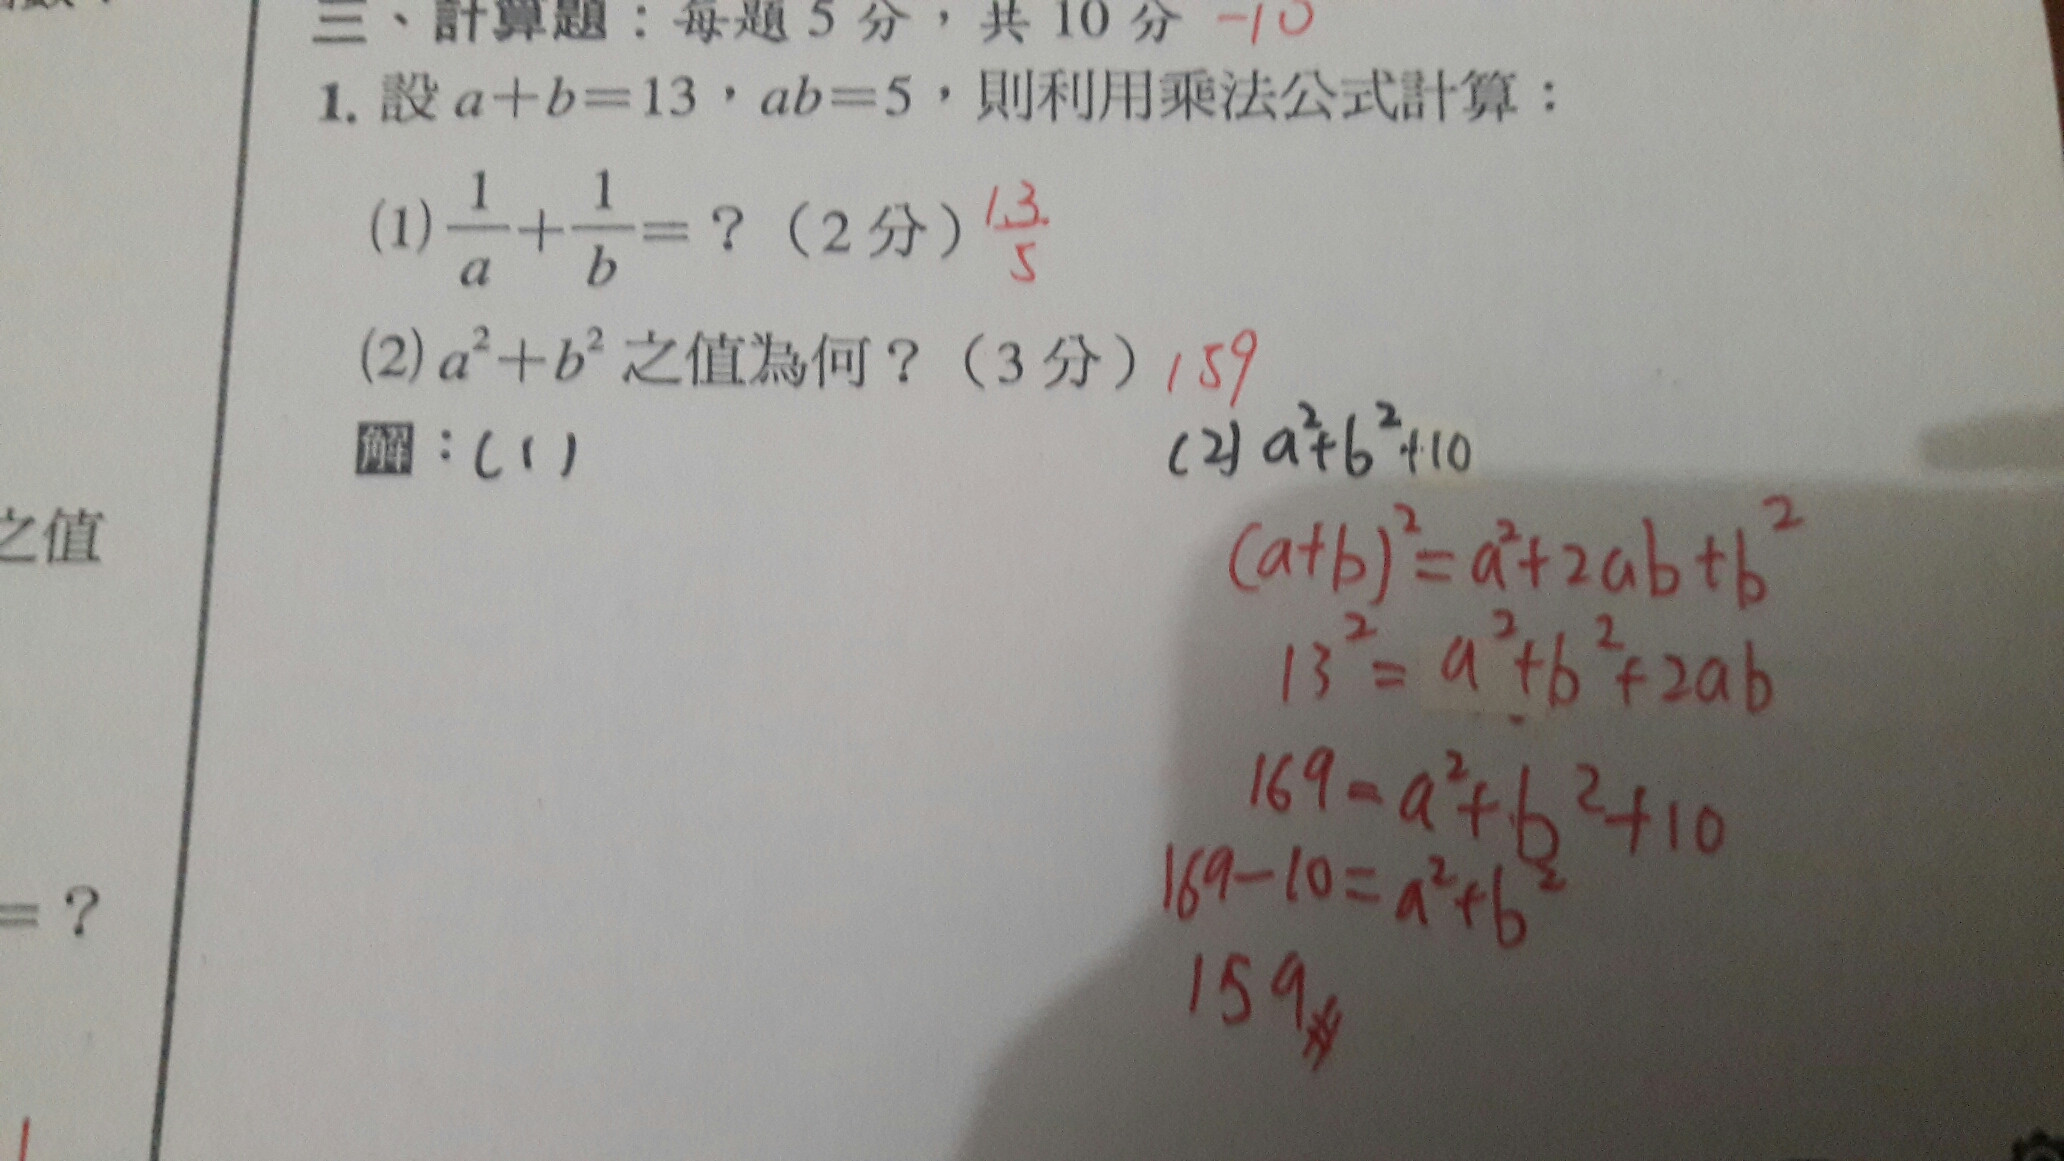 三、計算題：每題 5 分，共 10 分 -10
1. 設 a+b=13，ab=5，則利用乘法公式計算：
(1) 1/a + 1/b =？（2 分）13/5
(2) a²+b² 之值為何？（3 分）159
解：(1)
(2) a²+b²+10
(a+b)²=a²+2ab+b²
13²=a²+b²+2ab
169=a²+b²+10
169-10=a²+b²
159
之值
=？